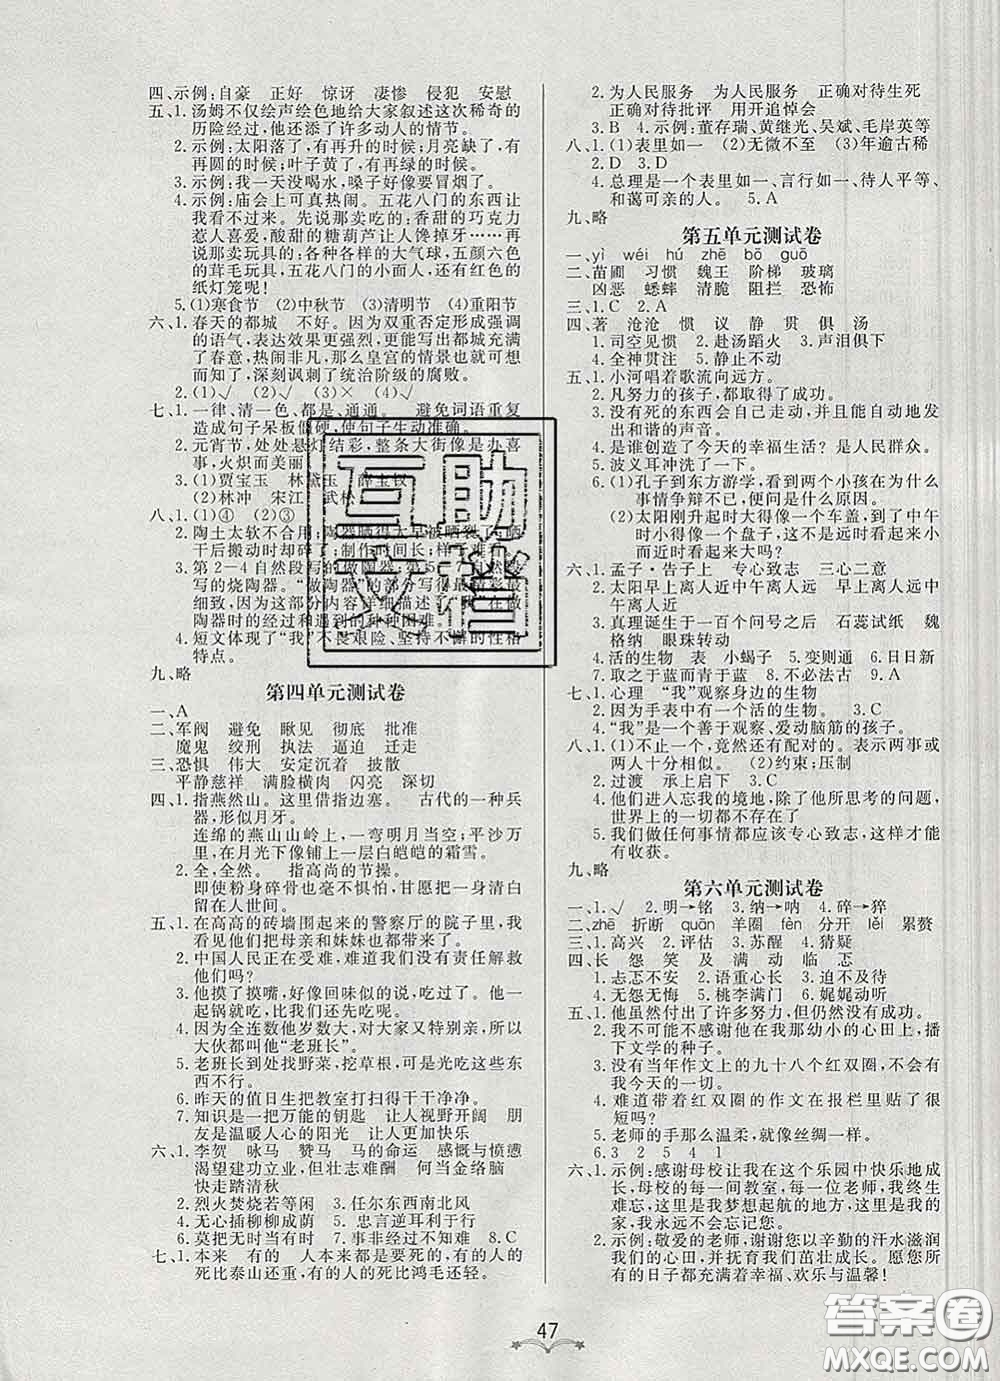 四、示例:自豪 正好 惊讶 凄惨 侵犯 安慰
五、1. 汤姆不仅绘声绘色地给大家叙述这次稀奇的
历险经过,他还添了许多动人的情节。
2. 示例:太阳落了,有再升的时候;月亮缺了,有
再圆的时候;叶子黄了,有再绿的时候。
3. 示例:我一天没喝水,嗓子好像要冒烟了。
4. 示例:庙会上可真热闹。五花八门的东西让
我看花了眼。先说说那卖吃的;香甜的巧克力
惹人喜爱,酸甜的糖葫芦让人馋掉牙……更好
看的是卖玩具的;各种各样的大气球,五颜六色
的茸毛玩具,五花八门的小面人,还有红色的
纸灯笼呢!
5. (1)寒食节 (2)中秋节 (3)清明节 (4)重阳节
六、1. 春天的都城 不好。因为双重否定形成强调
的语气,表达效果更突出,能写出都城充满了
春意,热闹非凡,那么皇宫的情景也就可想
而知了,深刻讽刺了统治阶级的腐败。
2. (1)√ (2)√ (3)× (4)√
七、1. 一律、清一色、都是、通通。 避免词语重复
造成句子呆板僵硬,使句子生动准确。
2. 元宵节,处处悬灯结彩,整条大街像是在办喜
事,火炽而美丽
3. (1)贾宝玉 林黛玉 薛宝钗
(2)林冲 宋江 武松
八、1. (1)④ (2)③
2. 陶土太软不合用;陶
干后搬动时却碎了;制作时间长;样子难看
3. 第2-4自然段写的做陶器,
写的烧陶器。“做陶器”的部分写得最
细致,因为这部分内容详细描述了“我”在做
陶器时的经过和遇到的种种困难。
4. 短文体现了“我”不畏艰险、坚持不懈的性格
特点。
九、略
第四单元测试卷
一、A
二、军阀 避免 瞅见 彻底 批准
魔鬼 绞刑 执法 逼迫 迁走
三、恐惧 伟大 安定沉着 披散
平静慈祥 满脸横肉 闪亮 深切
四、1. 指燕然山。这里借指边塞。 古代的一种兵
器,形似月牙。
连绵的燕山山岭上,一弯明月当空;平沙万
里,在月光下像铺上一层白皑皑的霜雪。
2. 全,全然。 指高尚的节操。
即使粉身碎骨也毫不惧怕,甘愿把一身清白
留在人世间。
五、1. 在高高的砖墙围起来的警察厅的院子里,我
看见他们把母亲和妹妹也都带来了。
2. 中国人民正在受难,难道我们没有责任解救
他们吗?
3. 他摸了摸嘴,好像回味似的说,吃过了。他一
起锅就吃,比我们还先吃呢。
4. 因为全连数他岁数大,对大家又特别亲,所以
大伙都叫他“老班长”。
5. 老班长到处找野菜,挖草根,可是光吃这些东
西不行。
6. 昨天的值日生把教室打扫得干干净净。
7. 知识是一把万能的钥匙 让人视野开阔 朋
友是温暖人心的阳光 让人更加快乐
六、1. 李贺 咏马 赞马 马的命运 感慨与愤懑
渴望建功立业,但壮志难酬 何当金络脑
快走踏清秋
2. 烈火焚烧若等闲 3. 任尔东西南北风
4. 无心插柳柳成荫 5. 忠言逆耳利于行
6. 莫把无时当有时 7. 事非经过不知难 8. C
七、1. 本来 有的 人本来都是要死的,有的人的
死比泰山还重,有的人的死比鸿毛还轻。
2. 为人民服务 为人民服务 正确对待生死
正确对待批评 用开追悼会
3. B 4. 示例:董存瑞、黄继光、吴斌、毛岸英等
八、1. (1)表里如一 (2)无微不至 (3)年逾古稀
2. D 3. D
4. 总理是一个表里如一、言行如一、待人平等、
和蔼可亲的人。 5. A
九、略
第五单元测试卷
一、yì wéi hú zhē bō guō
二、苗圃 习惯 魏王 阶梯 玻璃
凶恶 蟋蟀 清脆 阻拦 恐怖
三、1. C 2. A
四、著 沧沧 惯 议 静 贯 俱 汤
1. 司空见惯 2. 赴汤蹈火 3. 声泪俱下
4. 全神贯注 5. 静止不动
五、1. 小河唱着歌流向远方。
2. 凡努力的孩子,都取得了成功。
3. 没有死的东西会自己走动,并且能自动地发
出和谐的声音。
4. 是谁创造了今天的幸福生活?是人民群众。
5. 波义耳冲洗了一下。
6. (1)孔子到东方游学,看到两个小孩在为什么
事情争辩不已,便问是什么原因。
(2)太阳刚升起时大得像一个车盖,到了中午
时小得像一个盘子,这不是远时看起来小
而近时看起来大吗?
六、1. 孟子·告子上 专心致志 三心二意
2. 太阳早上离人近中午离人远 早上离人远中
午离人近
3. 真理诞生于一百个问号之后 石蕊试纸 魏
格纳 眼珠转动
4. 活的生物 表 小蝎子 5. 变则通 6. 日日新
7. 取之于蓝而青于蓝 8. 不必法古 9. A
七、1. 心理 “我”观察身边的生物
2. 因为手表中有一个活的生物。 3. C
4. “我”是一个善于观察、爱动脑筋的孩子。
八、1. (1)不止一个,竟然还有配对的。表示两事或
两人十分相似。 (2)约束;压制
2. 过渡 承上启下 3. C
4. 他们进入忘我的境地,除了他所思考的问题,
世界上的一切都不存在了
5. 我们做任何事情都应该专心致志,这样才能
有收获。
九、略
第六单元测试卷
一、1. √ 2. 明→铭 3. 纳→呐 4. 碎→猝
二、zhē 折断 quān 羊圈 fèn 分开 lěi 累赘
三、1. 高兴 2. 评估 3. 苏醒 4. 猜疑
四、长 怨 笑 及 满 动 临 忑
1. 忐忑不安 2. 语重心长 3. 迫不及待
4. 无怨无悔 5. 桃李满门 6. 娓娓动听
五、1. 他虽然付出了许多努力,但仍然没有成功。
2. 我不可能不感谢他在我那幼小的心田上,播
下文学的种子。
3. 没有当年作文上的九十八个红双圈,就没有
我今天的一切。
4. 难道带着红双圈的作文在报栏里贴了很
短吗?
5. 老师的手那么温柔,就像丝绸一样。
6. 3 2 5 4 1
六、1. 示例:感谢母校让我在这个乐园中快乐地成
长,您的每一间教室,每一位老师,我终生
难忘;这里是我梦想起航的地方,这里有我
的家,我永远不会忘记您。
2. 示例:敬爱的老师,谢谢您以辛勤的汗水滋润
我们的心田,并抚育我们茁壮成长。愿您所
有的日子都充满着幸福、欢乐与温馨!
47
互助文谐
答案圈
MXQE.COM